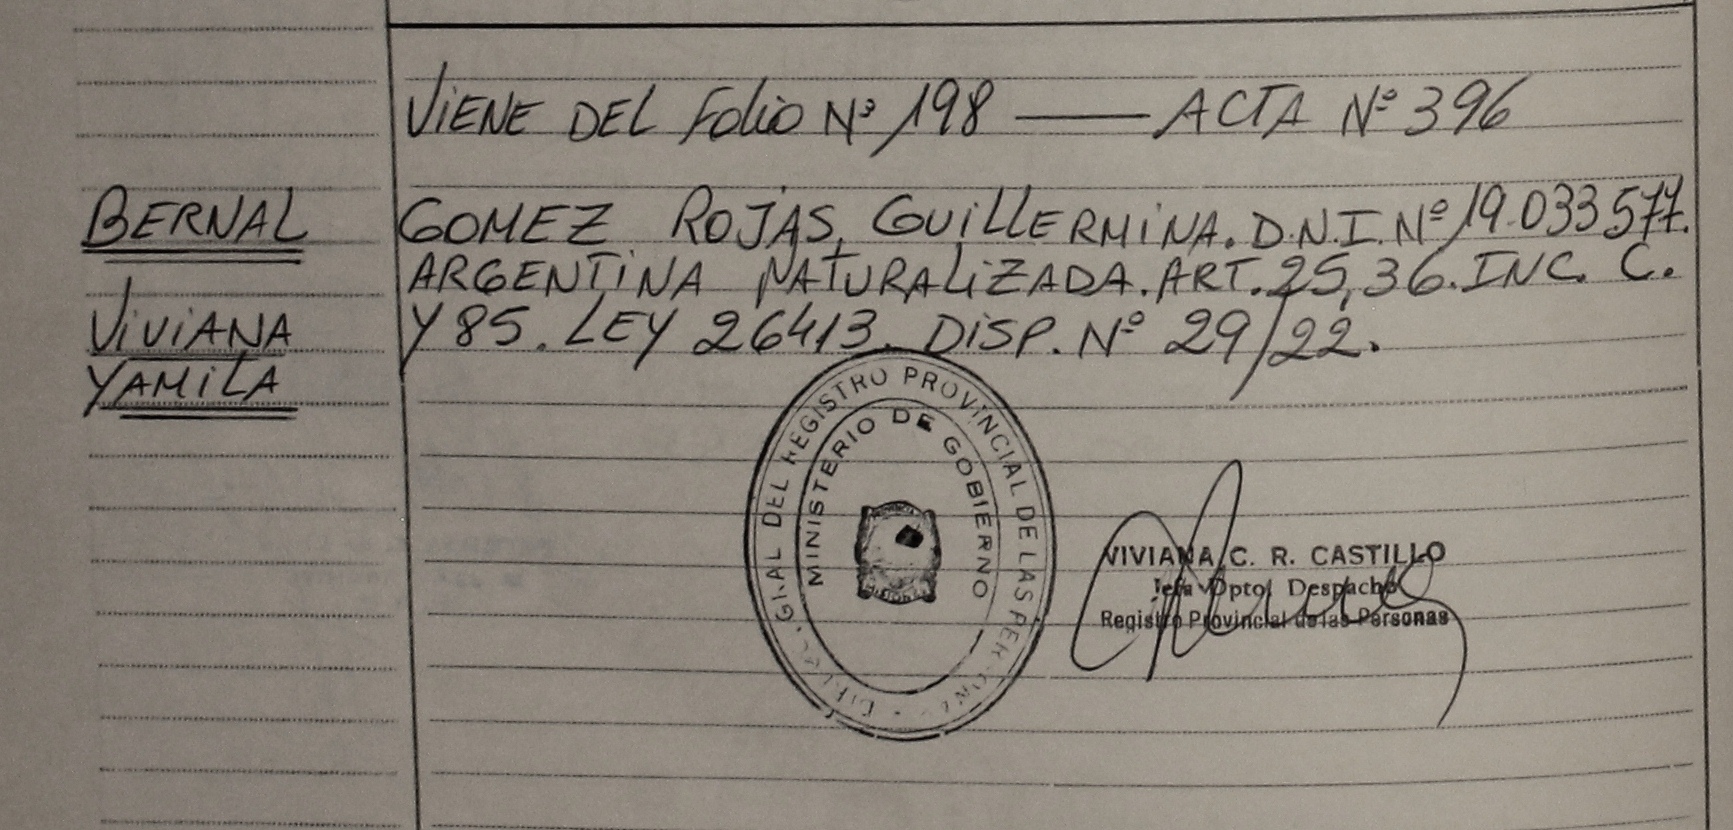 VIENE DEL FOLIO Nº 198 —— ACTA Nº 396
BERNAL
VIVIANA
YAMILA
GOMEZ ROJAS, GUILLERMINA. D.N.I. Nº 19.033577.
ARGENTINA NATURALIZADA. ART. 25, 36. INC. C.
Y 85. LEY 26413. DISP. Nº 29/22.
REGISTRO PROVINCIAL DE LAS
MINISTERIO DE GOBIERNO
VIVIANA C. R. CASTILLO
Jefa Dpto. Despacho
Registro Provincial de las Personas